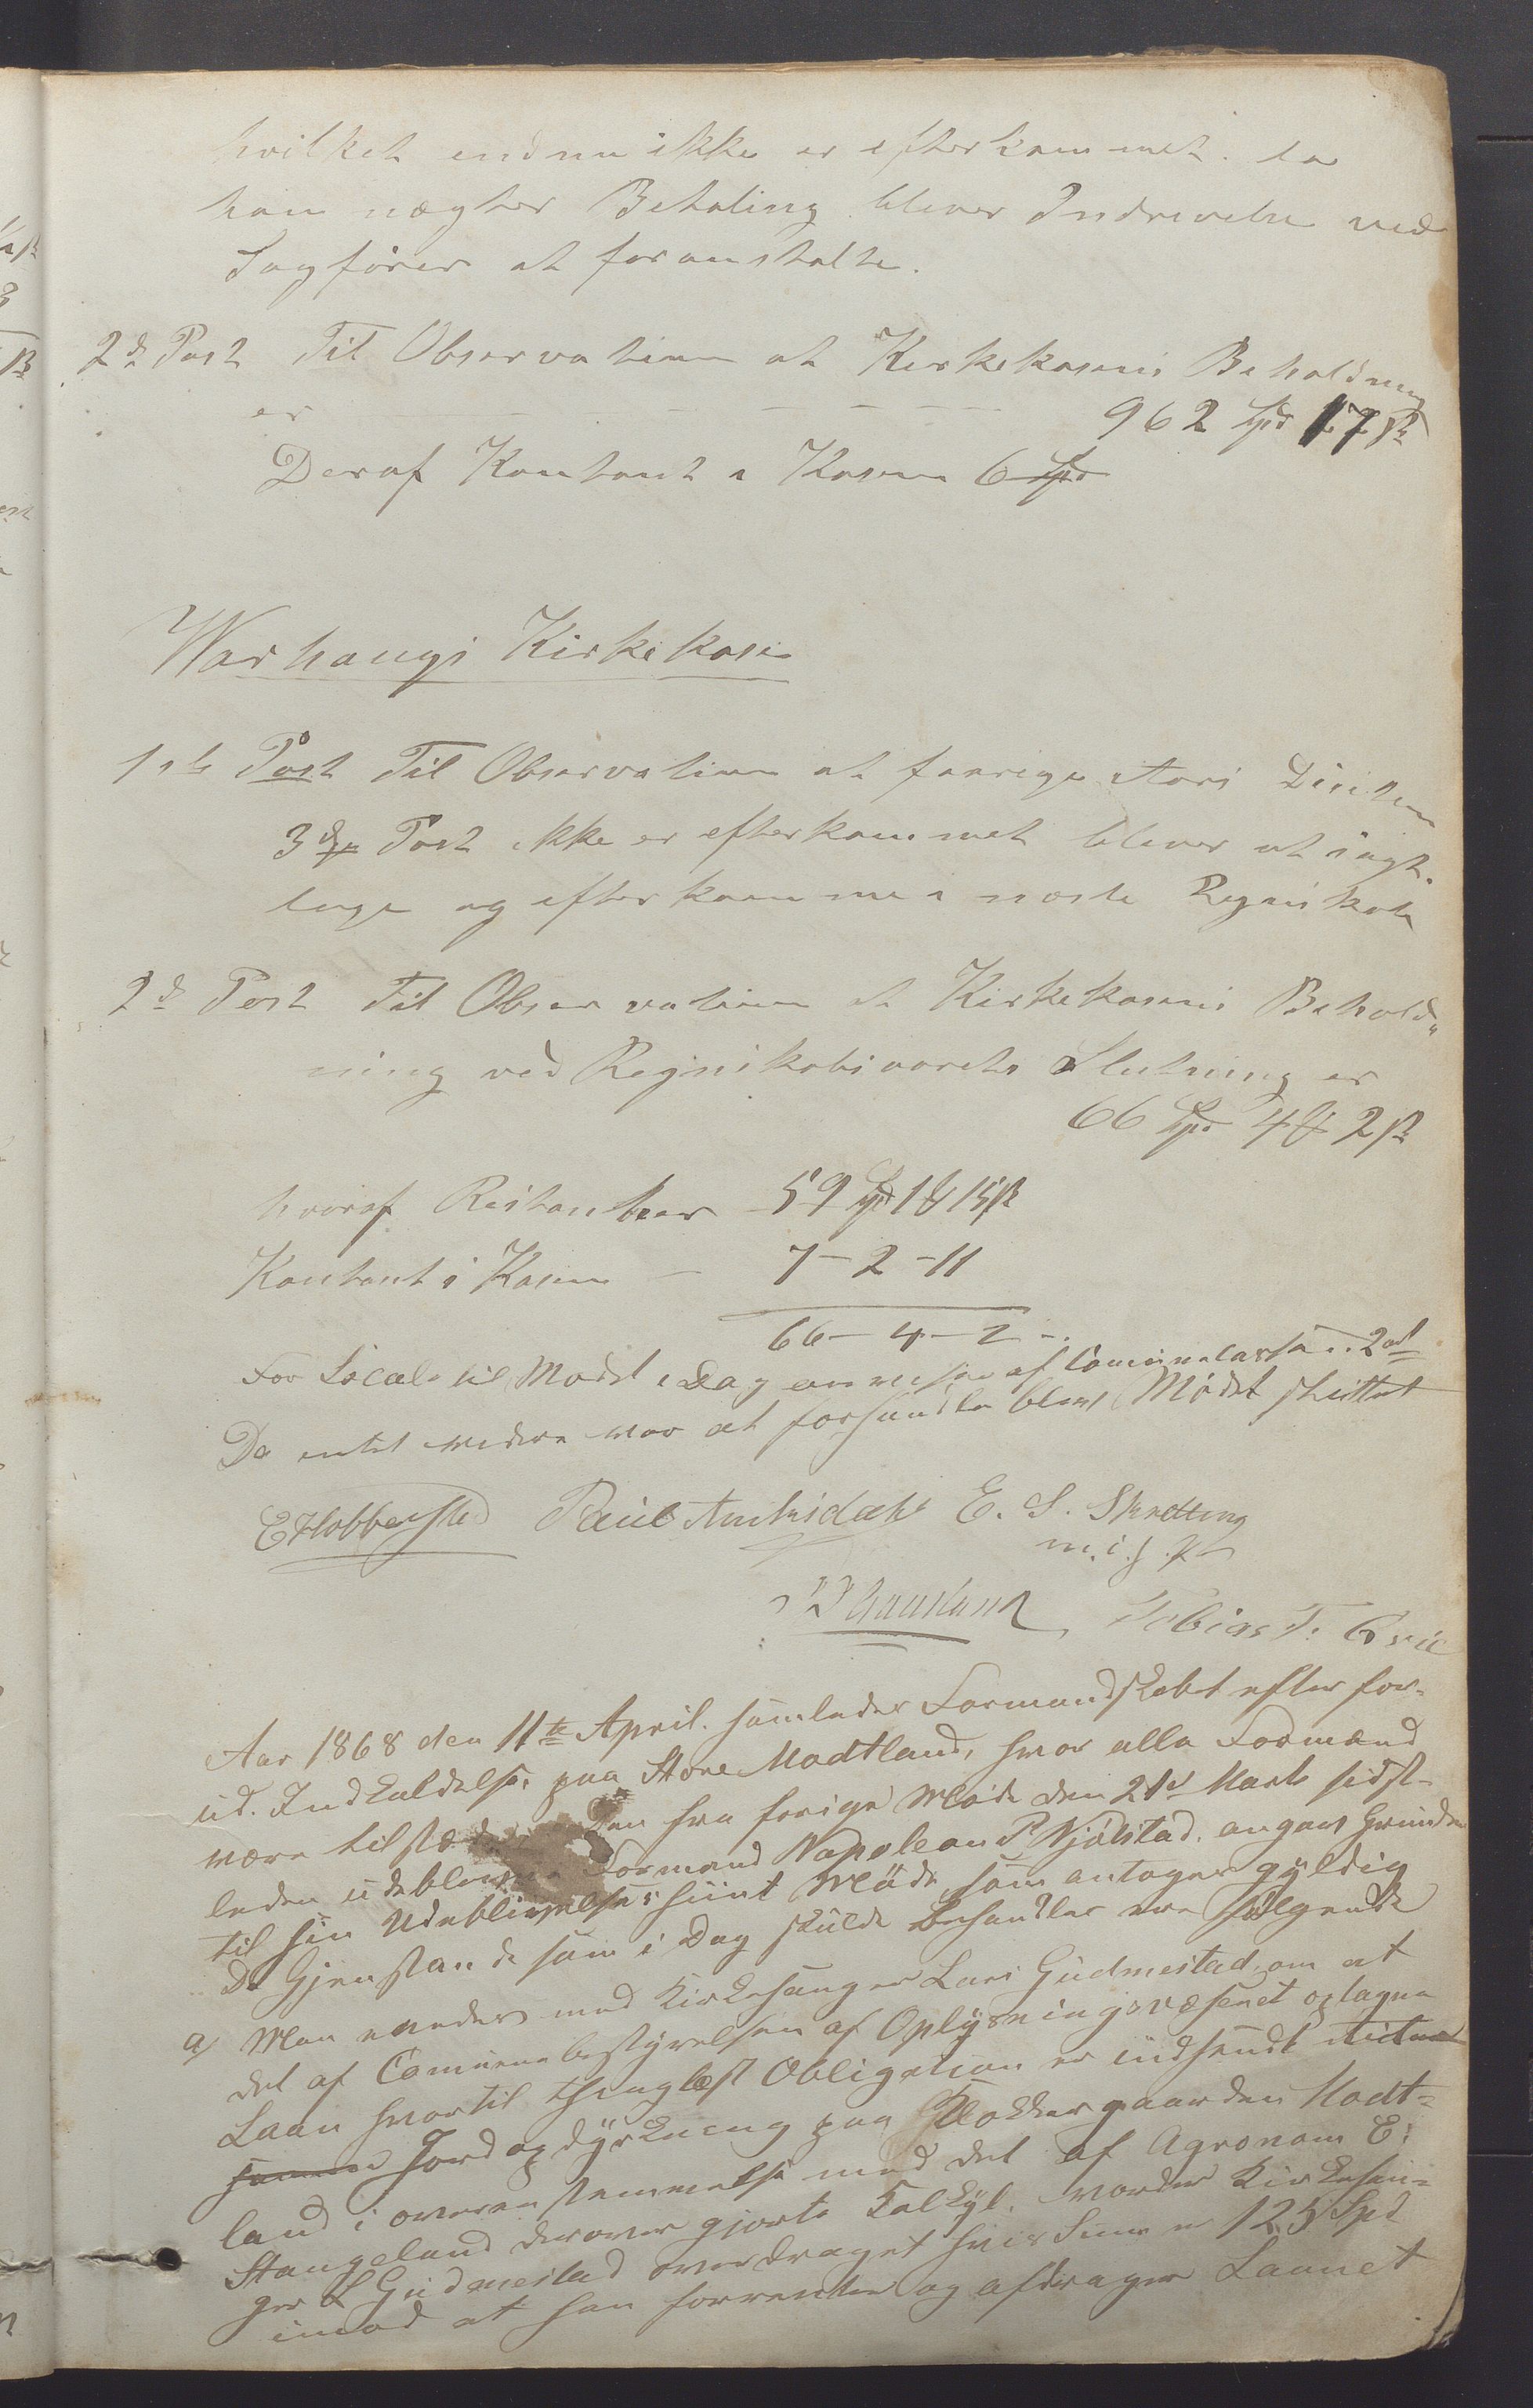 hvilket endnu ikke er efterkommet. da
han nægter Betaling bliver Inddrivelse ved
Sagfører at foranstalte.
2d Post Til Observation at Kirkekassens Beholdning
er — — — — 962 Spd 17 ß
Deraf Kontant i Kassen 6 Spd
Warhaugs Kirkekasse
1ste Post Til Observation at forrige Aars Decisions
3die Post ikke er efterkommet bliver at iagt-
tage og efterkomme i næste Regnskab
2d Post Til Observation at Kirkekassens Behold-
ning ved Regnskabsaarets Slutning er
66 Spd 4 ₰ 2 ß
hvoraf Restantser 59 Spd 1 ₰ 15 ß
Kontant i Kassen — 7 - 2 - 11
66 - 4 - 2 -
For Locale til Mødet i Dag anvises af Communecassen 2
Da intet videre var at forhandle blev Mødet sluttet
E Hobberstad Paul Aniksdahl E. S. Skretting
m. i. P.
Tobias T.
Aar 1868 den 11te April samledes Formandskabet efter for-
ud. Indkaldelse paa Store Motland, hvor alle Formænd
være tilstæde Den fra forige Møde den 21d Marts sidst-
leden udeblevne Formand Napolean P Njølstad, angav Grunden
til sin Udeblivelse siint Møde som antages gyldig
De Gjenstande som i Dag skulde behandles ere følgende
a) Man enedes med Kirkesanger Lars Gudmestad om at
det af Communebestyrelsen af Oplysningsvæsenet optagne
Laan hvortil thinglæst Obligation er indsendt
Jordopdyrkning paa Klokkergaarden Motd-
land i overensstemmelse med det af Agronom E.
Stangeland derover gjorte Kalkyl. vorder Kirkesan-
ger L Gudmestad overdraget hvis Sum er 125 Spd
imod at han forrenter og afdrager Laanet